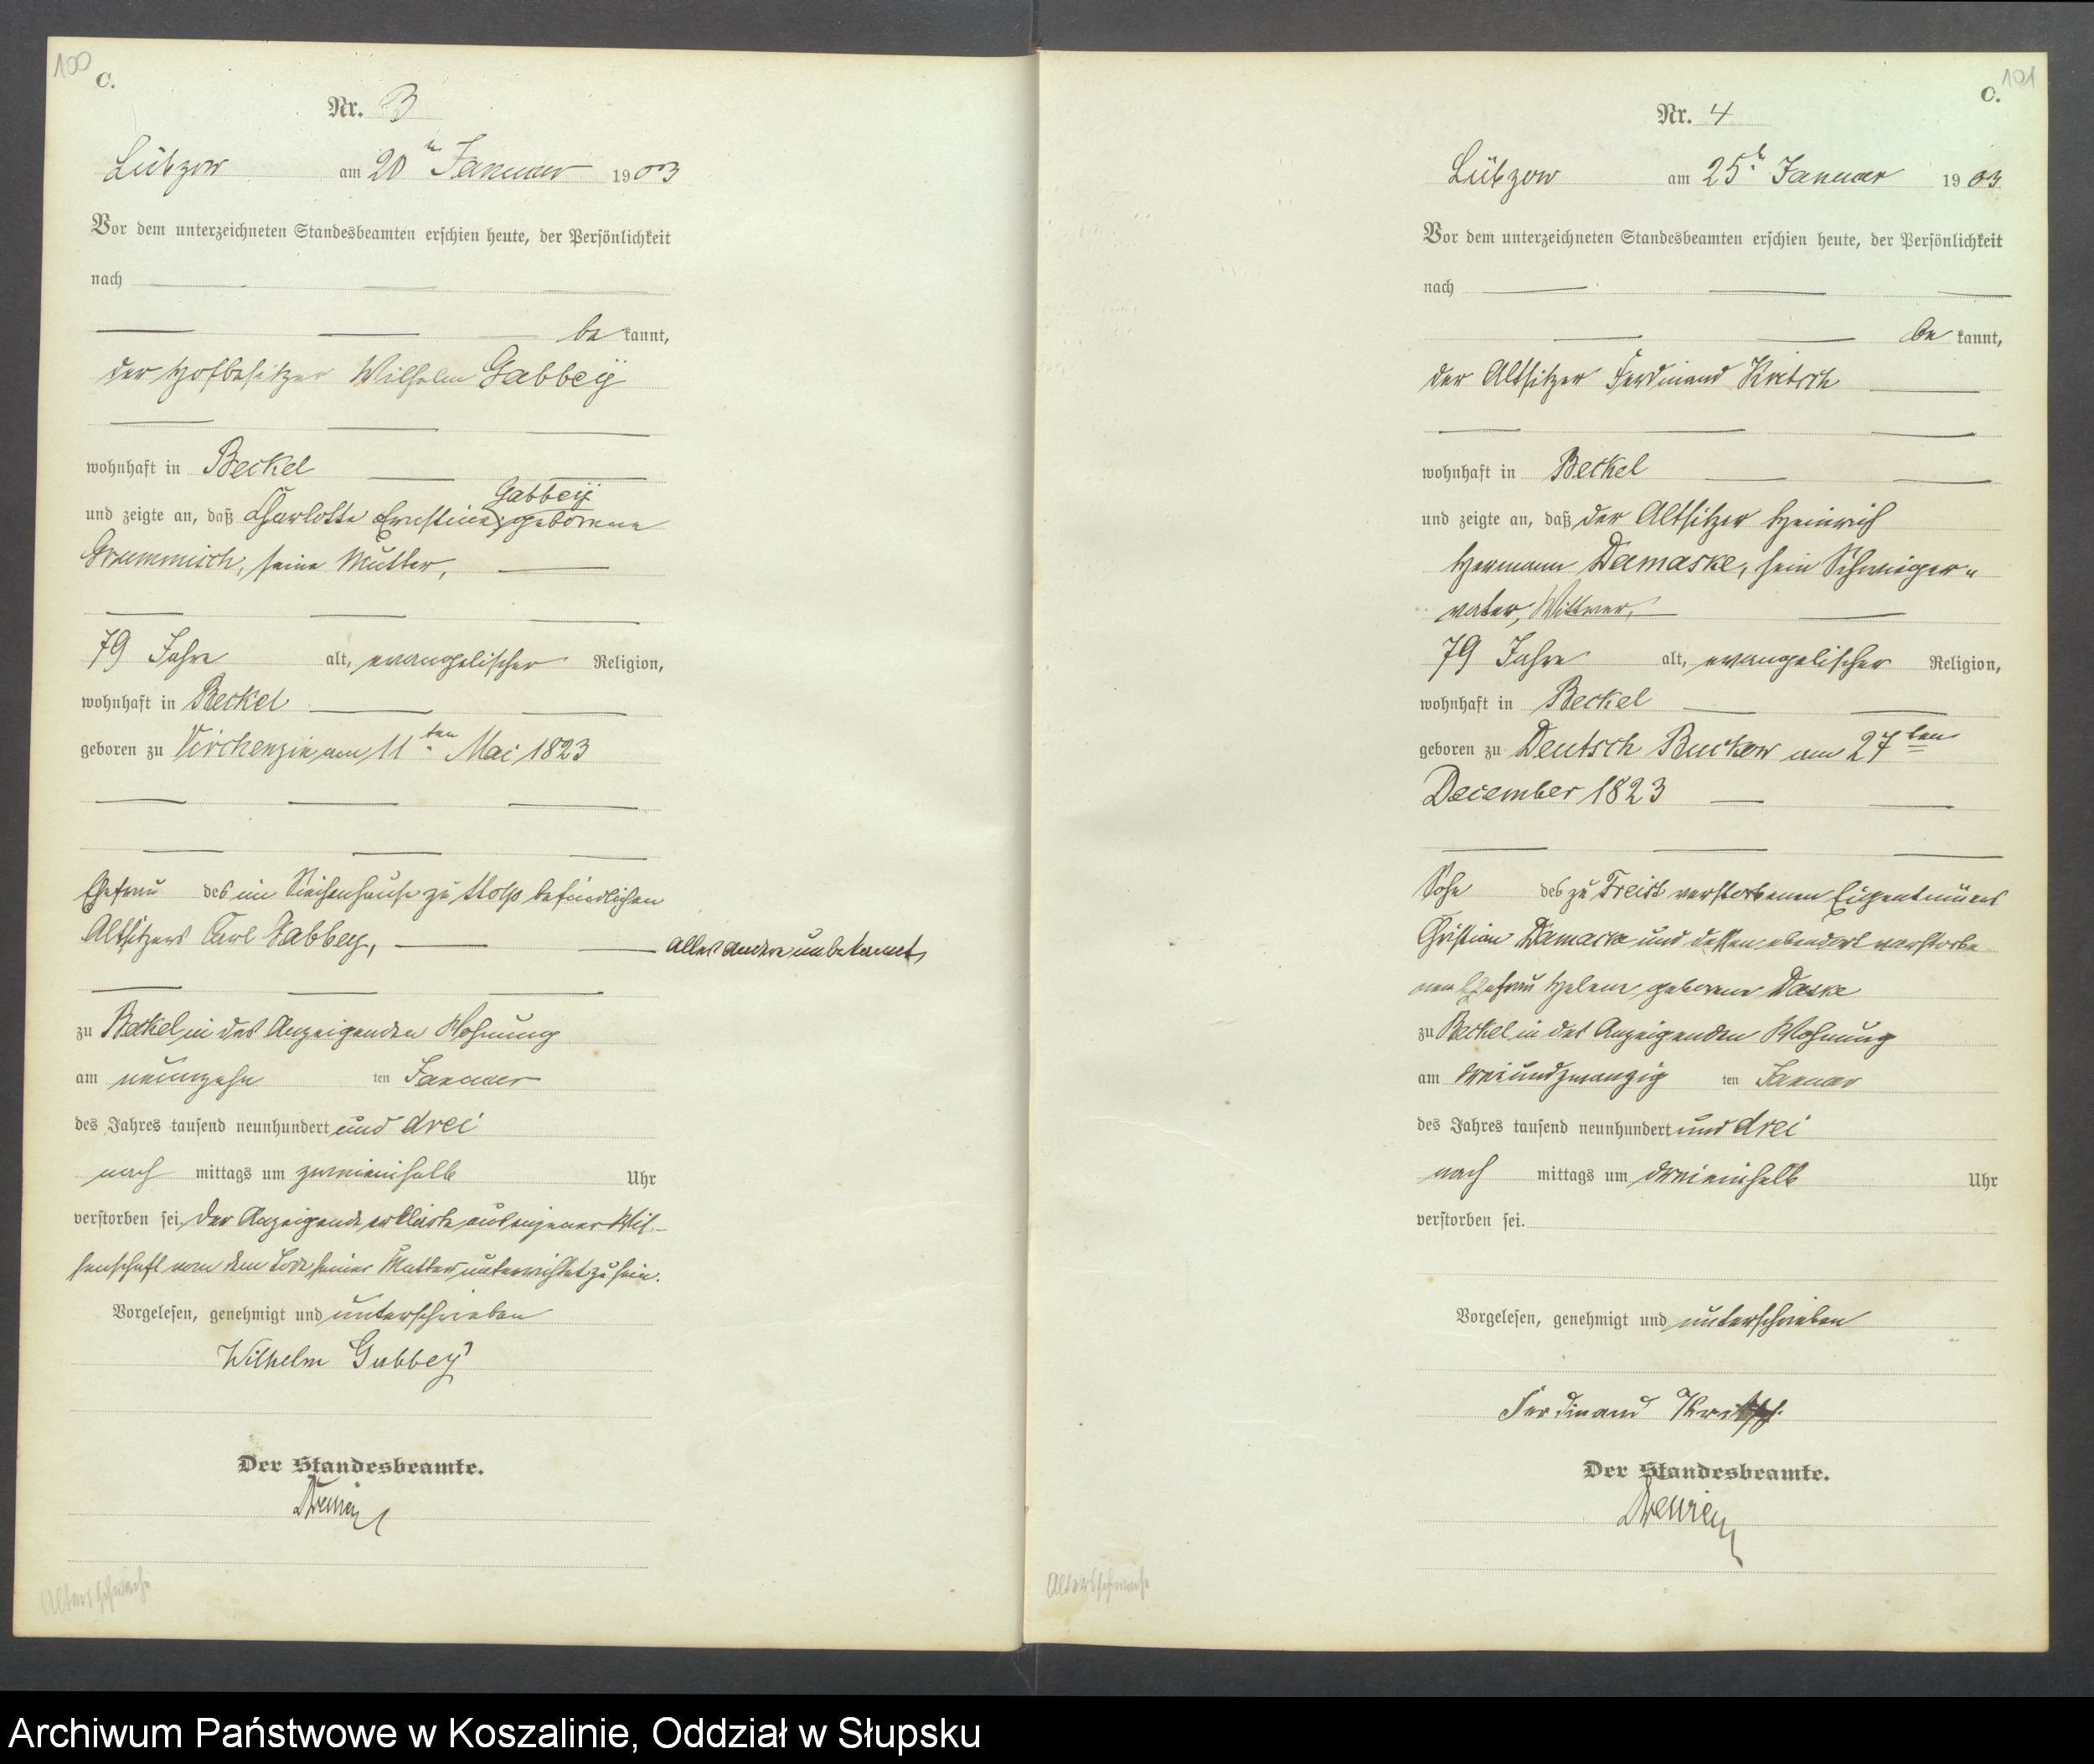 100
C.
Nr. 3
Lübzow am 20ten Januar 1903
Vor dem unterzeichneten Standesbeamten erschien heute, der Persönlichkeit
nach
be kannt,
der Hofbesitzer Wilhelm Gabbey
wohnhaft in Beckel
Gabbey
und zeigte an, daß Charlotte Ernstine geborene
Grammisch, seine Mutter,
79 Jahre alt, evangelischer Religion,
wohnhaft in Beckel
geboren zu Virchenzin am 11ten Mai 1823
Ehefrau des im Siechenhause zu Stolp befindlichen
Altsitzers Carl Gabbey,
alles andere unbekannt,
zu Beckel in des Anzeigenden Wohnung
am neunzehn ten Januar
des Jahres tausend neunhundert und drei
nach mittags um zweieinhalb Uhr
verstorben sei, der Anzeigende erklärte aus eigener Wis-
senschaft von dem Tode seiner Mutter unterrichtet zu sein.
Vorgelesen, genehmigt und unterschrieben
Wilhelm Gabbey
Der Standesbeamte.
Altersschwäche
101
C.
Nr. 4
Lübzow am 25t Januar 1903
Vor dem unterzeichneten Standesbeamten erschien heute, der Persönlichkeit
nach
be kannt,
der Altsitzer Ferdinand Kritsch
wohnhaft in Beckel
und zeigte an, daß der Altsitzer Heinrich
Hermann Damaske, sein Schwieger-
vater, Wittwer,
79 Jahre alt, evangelischer Religion,
wohnhaft in Beckel
geboren zu Deutsch Buckow am 27ten
December 1823
Sohn des zu Treist verstorbenen Eigentümers
Christian Damaske und dessen ebendort verstorbe
nen Ehefrau Helene, geborene Daske
zu Beckel in des Anzeigenden Wohnung
am dreiundzwanzig ten Januar
des Jahres tausend neunhundert und drei
nach mittags um dreieinhalb Uhr
verstorben sei.
Vorgelesen, genehmigt und unterschrieben
Ferdinand Kritsch.
Der Standesbeamte.
Altersschwäche
Archiwum Państwowe w Koszalinie, Oddział w Słupsku